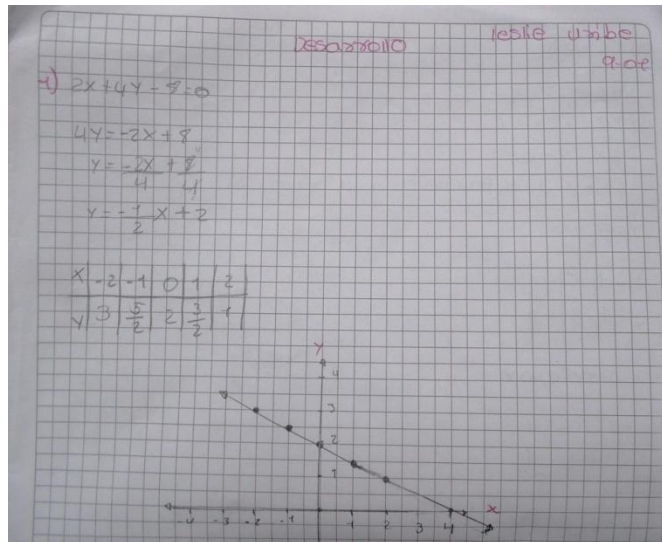 Desarrollo
leslie uribe
9-0e
1) 2x+4y-8=0
4y=-2x+8
y = -2x/4 + 8/4
y = -1/2 x + 2
x | -2 | -1 | 0 | 1 | 2
y | 3 | 5/2 | 2 | 3/2 | 1
y
4
3
2
1
x
-4 -3 -2 -1 1 2 3 4